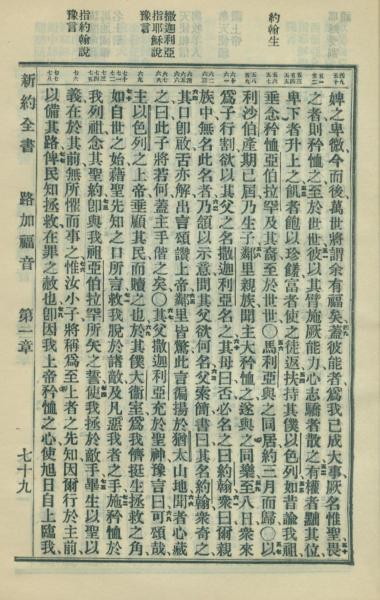 約翰生
撒迦利亞
指耶穌說
豫言
指約翰說
豫言
婢之卑微今而後萬世將謂余有福矣蓋彼能者爲我已成大事厥名惟聖畏
之者則矜恤之至於世世彼以其臂施厥能力心志驕者散之有權者黜其位
卑下者升上之飢者飽以珍饈富者使之徒返扶持其僕以色列如昔諭我祖
垂念矜恤亞伯拉罕及其裔至於世世○馬利亞與之同居約三月而歸○以
利沙伯產期已屆乃生子鄰里親族聞主大矜恤之遂與之同樂至八日衆來
爲子行割欲以其父之名撒迦利亞名之其母曰否必名之曰約翰衆曰爾親
族中無名此名者乃頷以示意問其父欲何名父索簡書曰其名約翰衆奇之
其口卽啟舌亦解出言頌讚上帝鄰里皆驚此言徧揚於猶太山地聞者心藏
之曰此子將若何蓋主手偕之矣○其父撒迦利亞充於聖神豫言曰可頌哉
主以色列之上帝垂顧其民而贖之也於其僕大衞室爲我儕挺生拯救之角
如自世之始藉聖先知之口所言救我脫於諸敵及凡惡我者之手施矜恤於
我列祖念其聖約卽與我祖亞伯拉罕所矢之誓使我拯於敵手畢生以聖以
義在於其前無所懼而事之惟汝小子將稱爲至上者之先知因爾行於主前
以備其路俾民知拯救在罪之赦也卽因我上帝矜恤之心使旭日自上臨我
新約全書 路加福音 第一章 七十九